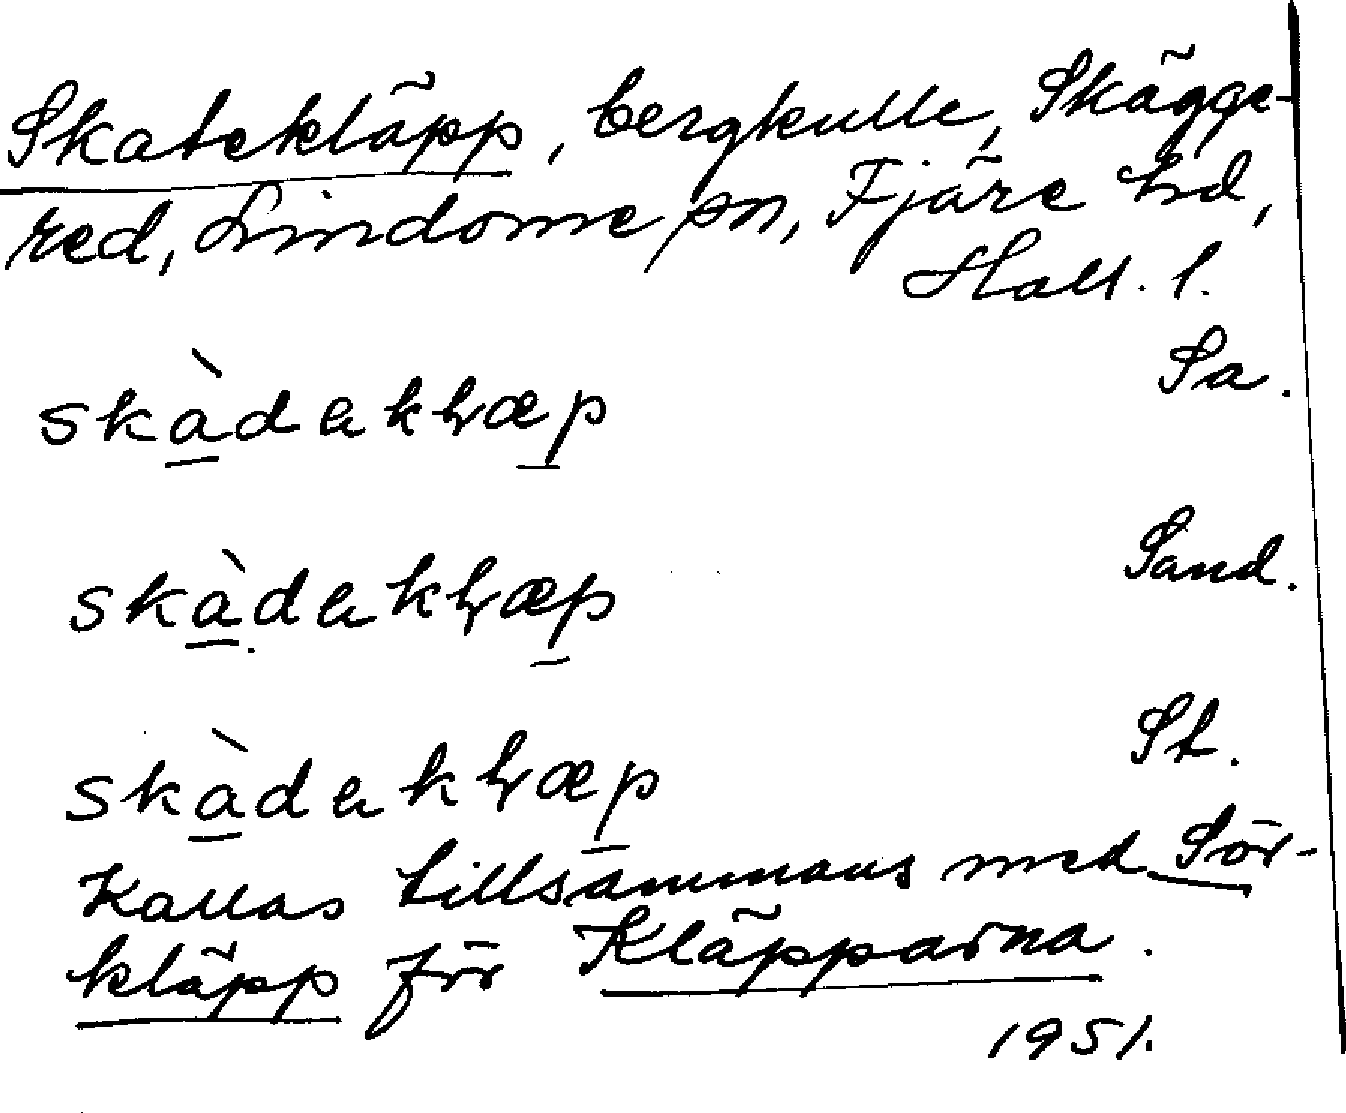 Skatekläpp, bergkulle, Skägge-
red, Lindome sn, Fjäre hd,
Hall. l.
Sa.
skàdeklæp
Sand.
skàdeklæp
St.
skàdeklæp
Kallas tillsammans med Sör-
kläpp för Kläpparna.
1951.